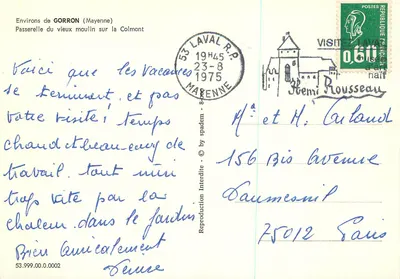 Environs de GORRON (Mayenne)
Passerelle du vieux moulin sur la Colmont
Voici que les vacances
se terminent et pas
votre visite! temps
chaud et beaucoup de
travail. tout mûri
trop vite par la
chaleur dans le jardin
Bien amicalement
Denise
53.999.00.0.0002
Reproduction Interdite - © by spadem - 
53 LAVAL R.P.
19H45
23-8
1975
MAYENNE
VISITEZ LAVAL
naïf
Henri Rousseau
0,60
REPUBLIQUE FRANCAISE
M. et M. Carland
156 Bis Avenue
Daumesnil
75012 Paris